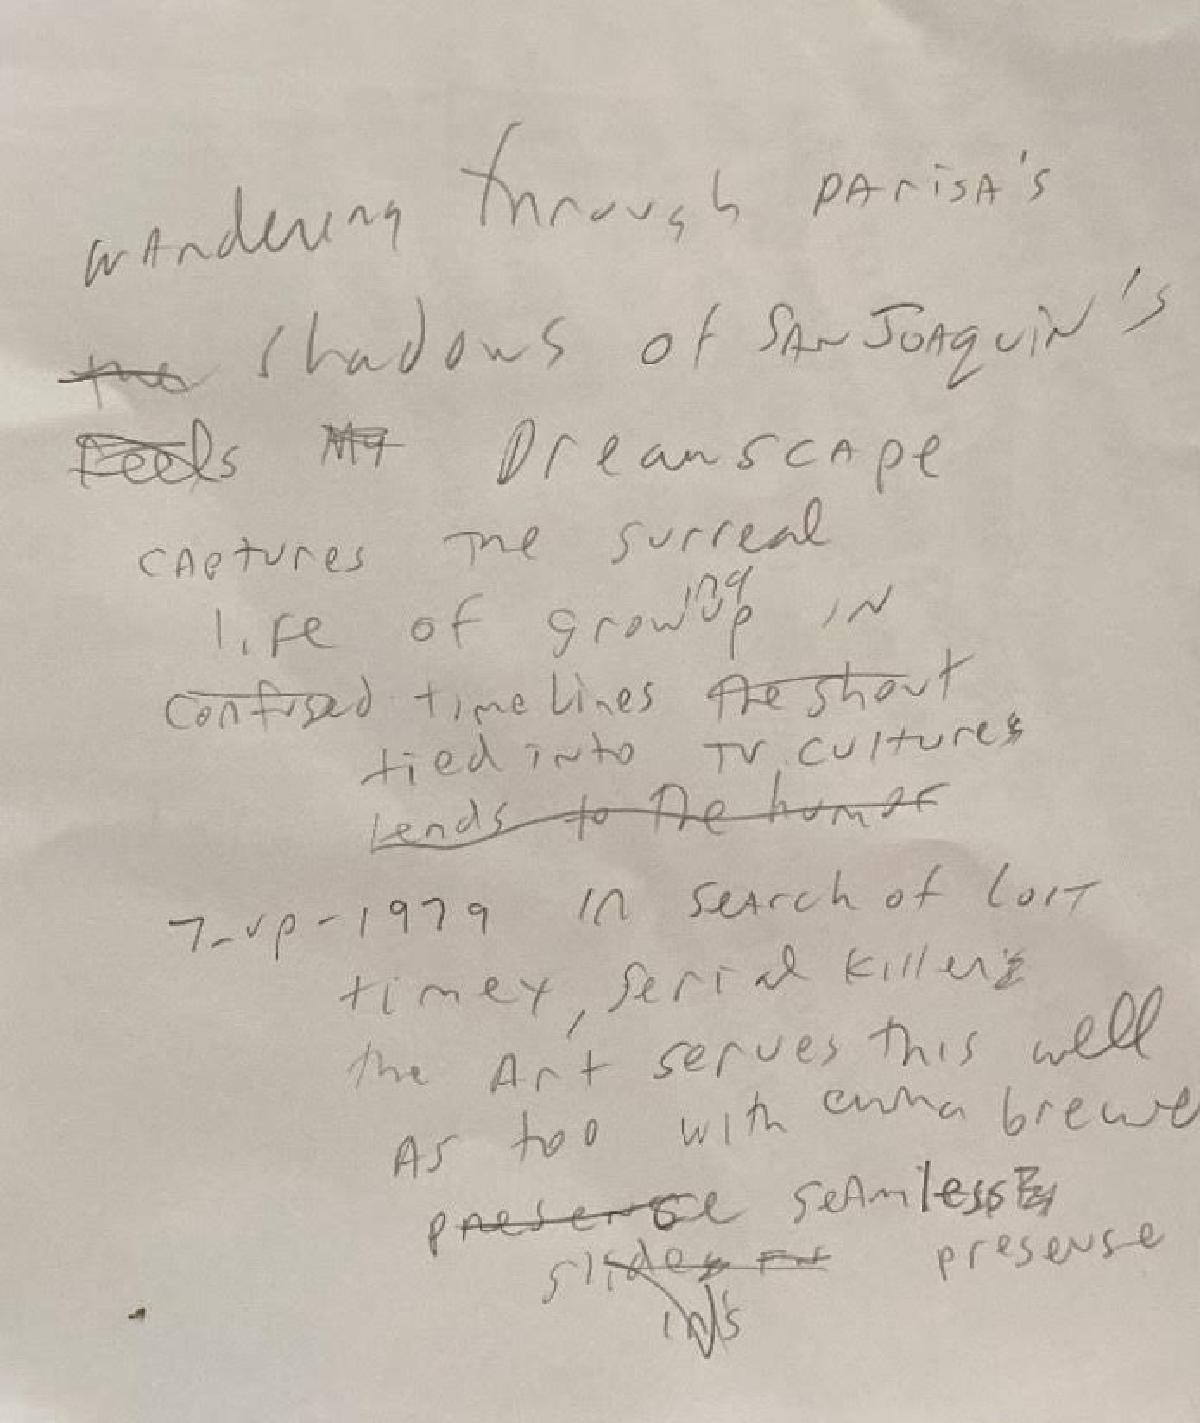 wandering through PARISA's
the shadows of SAN JOAQUIN's
Feels My Dreamscape
captures the surreal
life of growing up IN
confused timelines the shout
tied into TV cultures
lends to the humor
7-up-1979 in search of lost
timex, serial killers
the Art serves this well
As too with emma brewe
presence seamless
slides for presense
in's